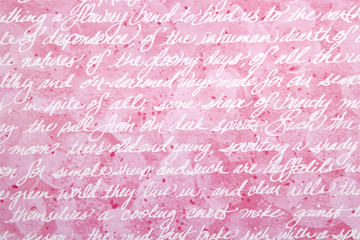 thing a flowery band to bind us to the earth
te of dependence, of the inhuman dearth of
ble natures, of the gloomy days, of all the u
lthy and over-darkened ways made for our sear
s, in spite of all, some shape of beauty m
ay the pall from our dark spirits. Such the
e moon, trees old and young, sprouting a shady
oon for simple sheep; and such are daffodils
he green world they live in; and clear rills th
themselves a cooling covert make gainst th
season; the mid forest brake, rich with a s